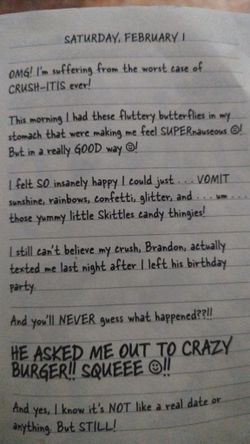 SATURDAY, FEBRUARY 1
OMG! I'm suffering from the worst case of
CRUSH-ITIS ever!
This morning I had these fluttery butterflies in my
stomach that were making me feel SUPERnauseous ☹!
But in a really GOOD way ☺!
I felt SO insanely happy I could just . . . VOMIT
sunshine, rainbows, confetti, glitter, and . . . um . . .
those yummy little Skittles candy thingies!
I still can't believe my crush, Brandon, actually
texted me last night after I left his birthday
party.
And you'll NEVER guess what happened??!!
HE ASKED ME OUT TO CRAZY
BURGER!! SQUEEE ☺!!
And yes, I know it's NOT like a real date or
anything. But STILL!